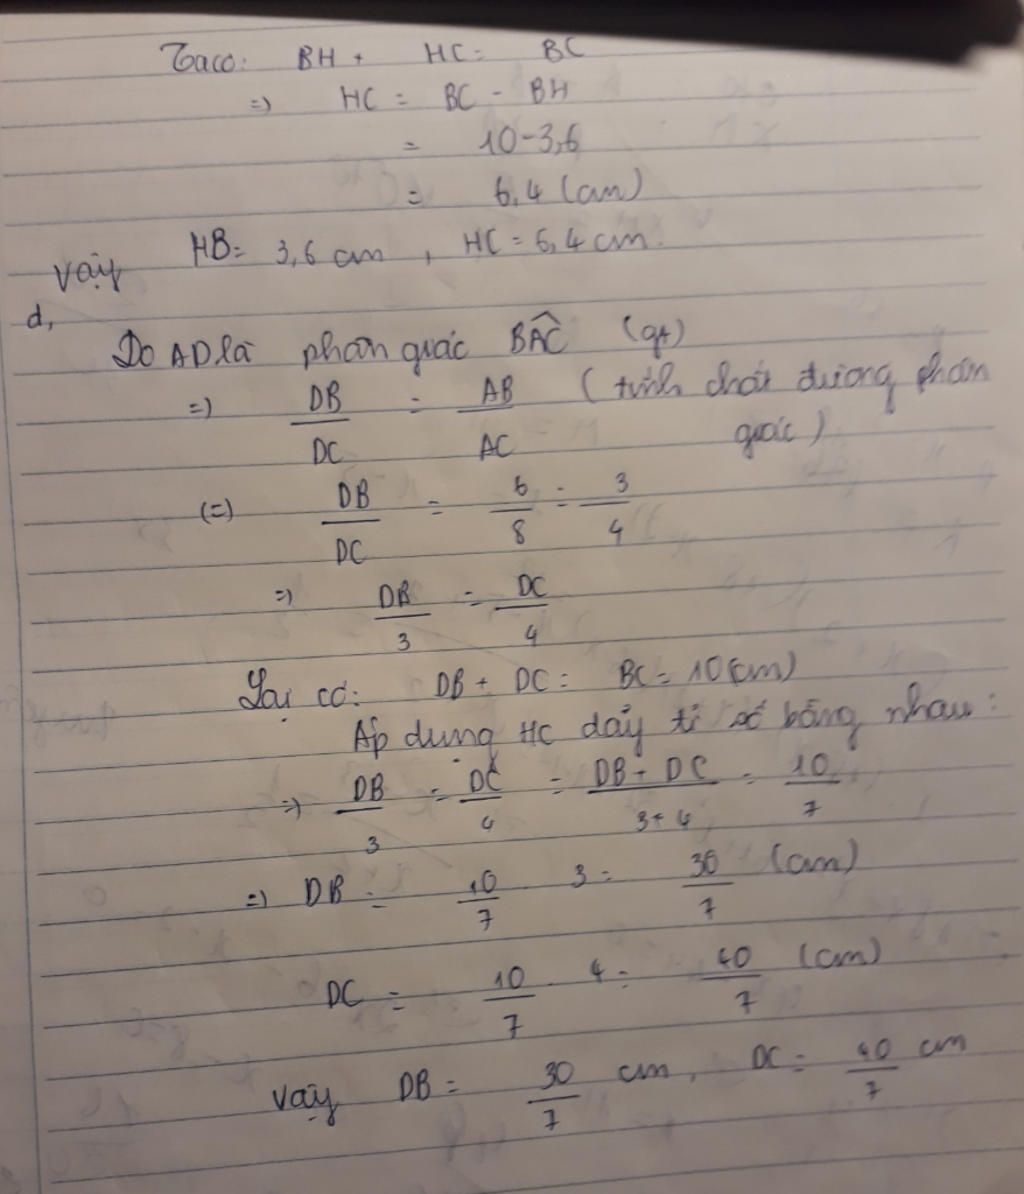 Ta có: BH + HC = BC
=) HC = BC - BH
= 10-3,6
= 6,4 (cm)
Vậy HB = 3,6 cm , HC = 6,4 cm.
d,
Do AD là phân giác BÂC (gt)
=) DB/DC = AB/AC (tính chất đường phân
giác)
(=) DB/DC = 6/8 = 3/4
=) DB/3 = DC/4
Lại có: DB + DC = BC = 10 (cm)
Áp dụng HC dãy tỉ số bằng nhau:
=) DB/3 = DC/4 = DB + DC/3+4 = 10/7
=) DB = 10/7 . 3 = 30/7 (cm)
DC = 10/7 . 4 = 40/7 (cm)
Vậy DB = 30/7 cm , DC = 40/7 cm